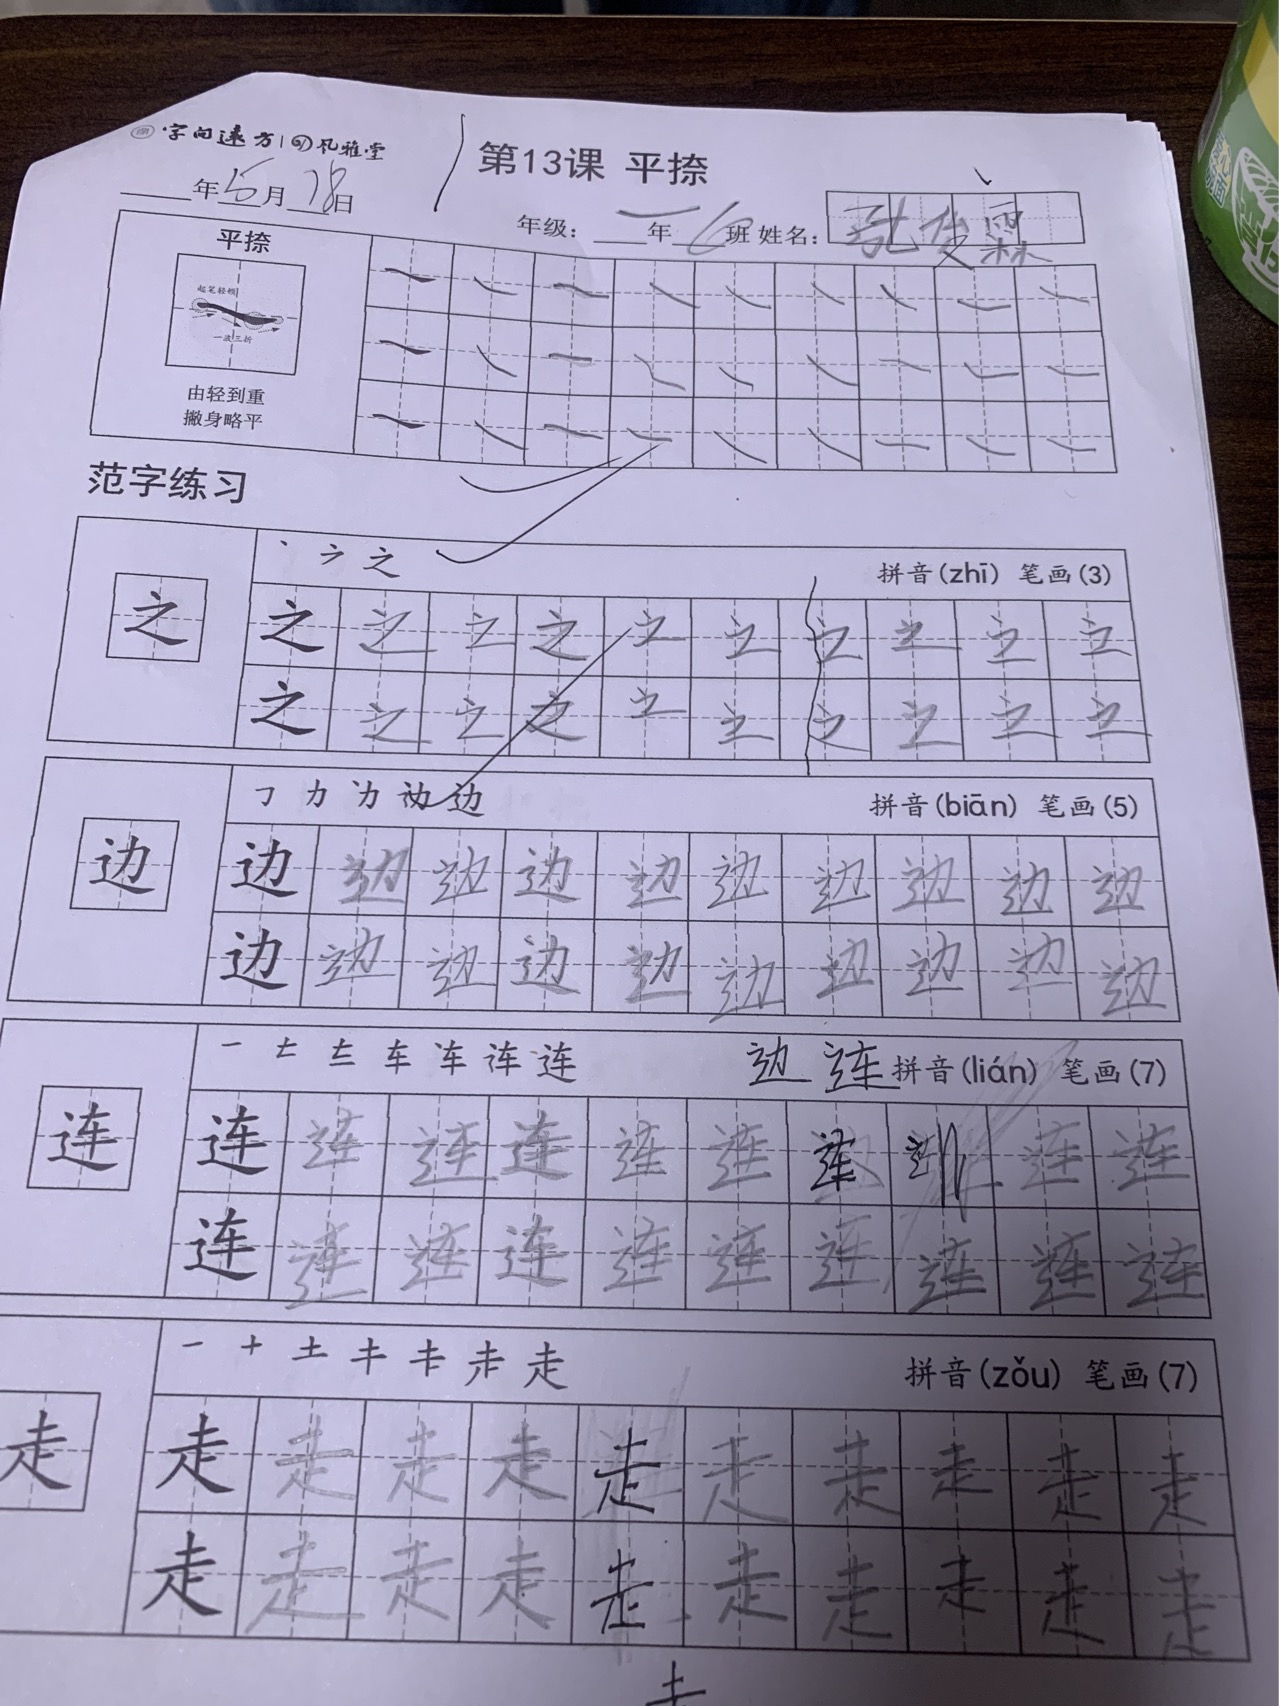 字向远方 风雅堂
第13课 平捺
年5月18日
年级：一年6班 姓名：
平捺
起笔轻顿
一波三折
由轻到重
撇身略平
范字练习
丶 之 拼音(zhī) 笔画(3)
之 之 之 之 之 之 之 之 之 之 之
之 之 之 之 之 之 之 之 之 之
力 边 拼音(biān) 笔画(5)
边 边 边 边 边 边 边 边 边 边 边
边 边 边 边 边 边 边 边 边 边
一 车 车 连 连 边 连 拼音(lián) 笔画(7)
连 连 连 连 连 连 连 连 连 连
连 连 连 连 连 连 连 连 连 连
一 十 土 走 走 拼音(zǒu) 笔画(7)
走 走 走 走 走 走 走 走 走 走 走
走 走 走 走 走 走 走 走 走 走
走